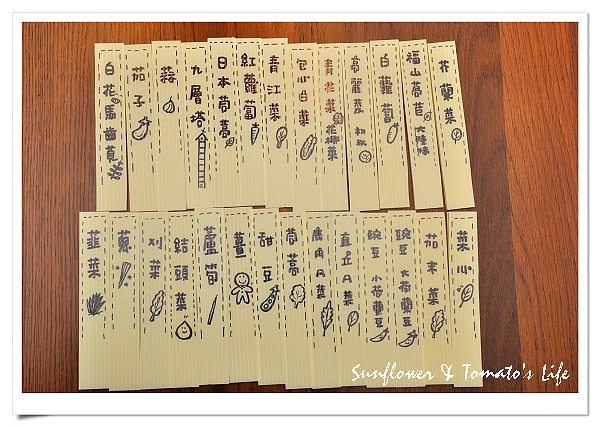 白花馬齒莧
茄子
蒜
九層塔
日本茼蒿
紅蘿蔔
青江菜
包心白菜
青花菜
花椰菜
高麗菜
初秋
白蘿蔔
福山萵苣
大陸妹
花蘭菜
韮菜
蔥
刈菜
結頭菜
蘆筍
薑
甜豆
茼蒿
鹿角A菜
直立A菜
豌豆
小荷蘭豆
豌豆
大荷蘭豆
茄末菜
菜心
Sunflower & Tomato's Life